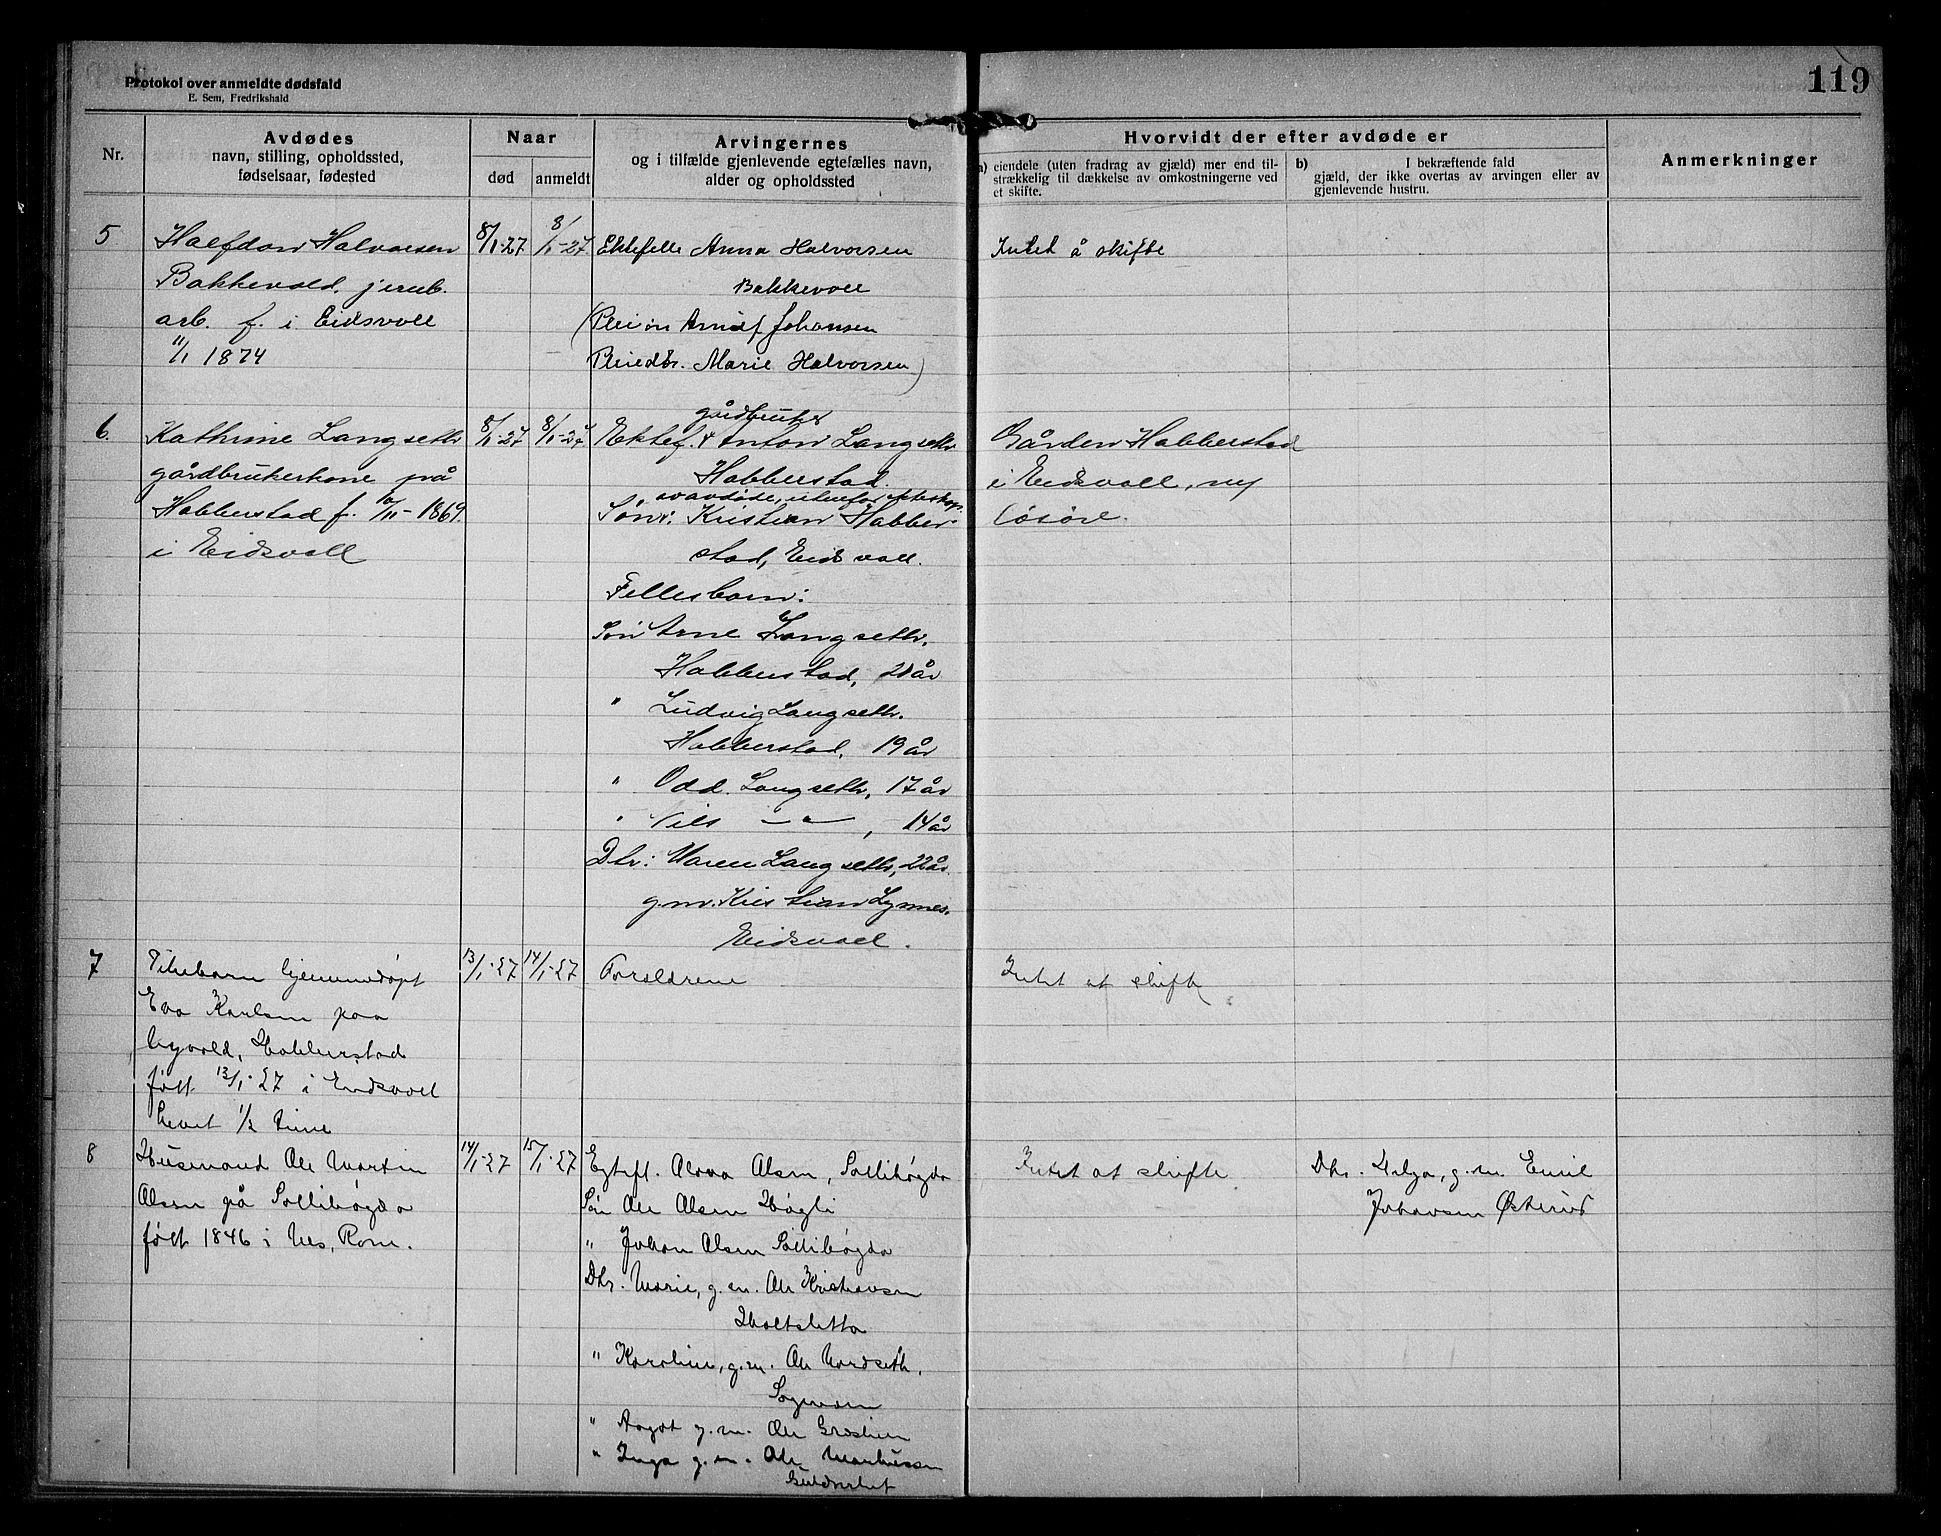 Protokol over anmeldte dødsfald
E. Sem, Fredrikshald
119
Nr.
Avdødes
navn, stilling, opholdssted,
fødselsaar, fødested
Naar
død
anmeldt
Arvingernes
og i tilfælde gjenlevende egtefælles navn,
alder og opholdssted
Hvorvidt der efter avdøde er
a) eiendele (uten fradrag av gjæld) mer end til-
strækkelig til dækkelse av omkostningerne ved
et skifte.
b) I bekræftende fald
gjæld, der ikke overtas av arvingen eller av
gjenlevende hustru.
Anmerkninger
5
Halfdan Halvorsen
Bakkevold, jernb.
arb. f. i Eidsvoll
11/1 1874
8/1-27
8/1-27
Ektefelle Anna Halvorsen
Bakkevoll
(Pleiesøn Arnulf Johansen
Pleiedtr. Marie Halvorsen)
Intet å skifte
6.
Kathrine Langseth
gårdbrukerkone på
Habberstad f. 10/11-1869
i Eidsvoll
8/1-27
8/1-27
gårdbruker
Ektef. Anton Langseth
Habberstad.
avdøde, utenfor ekteskap.
Søn: Kristian Habber-
stad, Eidsvoll.
Fellesbarn:
Søn Arne Langseth,
Habberstad, 21 år
" Ludvig Langseth.
Habberstad, 19 år
" Odd Langseth, 17 år
" Nils -"-, 14 år
Dtr: Maren Langseth, 22 år.
g.m. Kristian Lynnes.
Eidsvoll.
Gården Habberstad
i Eidsvoll,
løsøre.
7
Pikebarn hjemmedøpt
Eva Karlsen paa
Habberstad
født 13/1-27 i Eidsvoll
Levet 1/2 time
13/1-27
14/1-27
Forældrene
Intet at skifte
8
Husmand Ole Martin
Olsen på Sollibøgda
født 1846 i Nes, Rom.
14/1-27
15/1-27
Egtefl. Olava Olsen, Sollibøgda
Søn Ole Olsen Høgli
" Johan Olsen Sollibøgda
Dtr. Marie, g.m. Ole Kristiansen
Holtsletta
" Karoline, g.m. Ole Nordseth.
" Aagot g.m. Ole
" Inga g.m. Ole Markussen
Intet at skifte
Dtr. Helga, g.m. Emil
Johansen Østerud